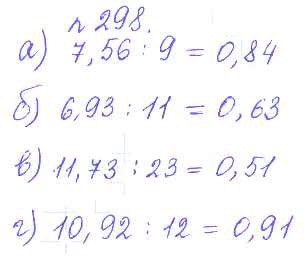 № 298.
а) 7,56 : 9 = 0,84
б) 6,93 : 11 = 0,63
в) 11,73 : 23 = 0,51
г) 10,92 : 12 = 0,91